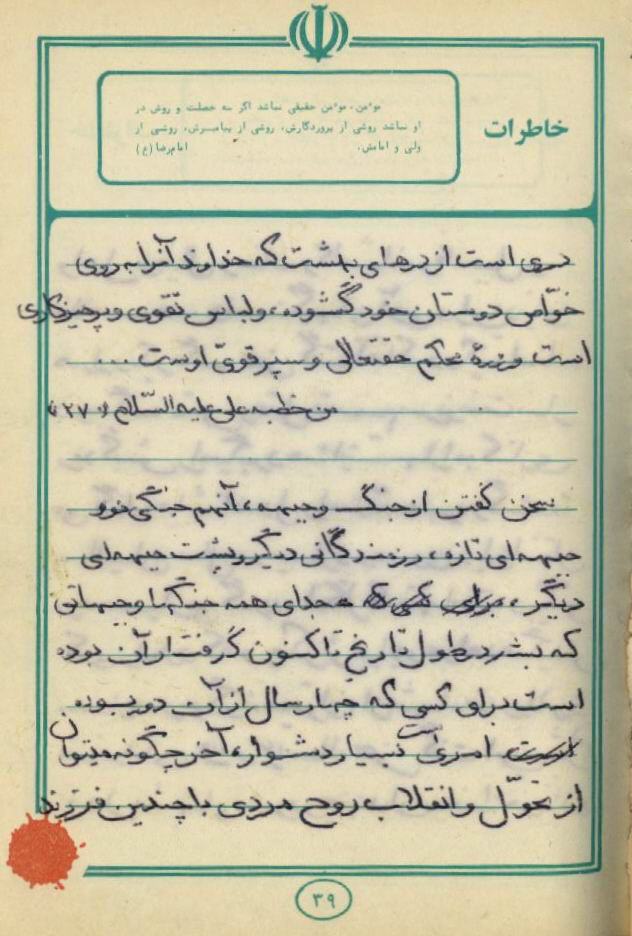 خاطرات
مو٬من، مو٬من حقیقی نباشد اگر سه خصلت و روش در
او نباشد روشی از پروردگارش، روشی از پیامبرش، روشی از
ولی و امامش. امام‌رضا (ع)
دری است از درهای بهشت که خداوند آنرا به روی
خوّاص دوستان خود گشوده، ولباس تقوی و پرهیزکاری
است و زرهٔ محکم حقتعالی و سپر قویّ اوست ...
من خطبه علی علیه السّلام ۲۷
سخن گفتن از جنگ و جبهه، آنهم جنگی نو و
جبهه‌ای تازه، رزمندگانی دیگر و پشت جبهه‌ای
دیگر، جدای همه جنگها و جبهاتی
که بشر در طول تاریخ تاکنون گرفتار آن بوده
است برای کسی که چهار سال از آن دور بوده
امری است بسیار دشوار، آخر چگونه میتوان
از تحوّل و انقلاب روح مردی با چندین فرزند
۳۹